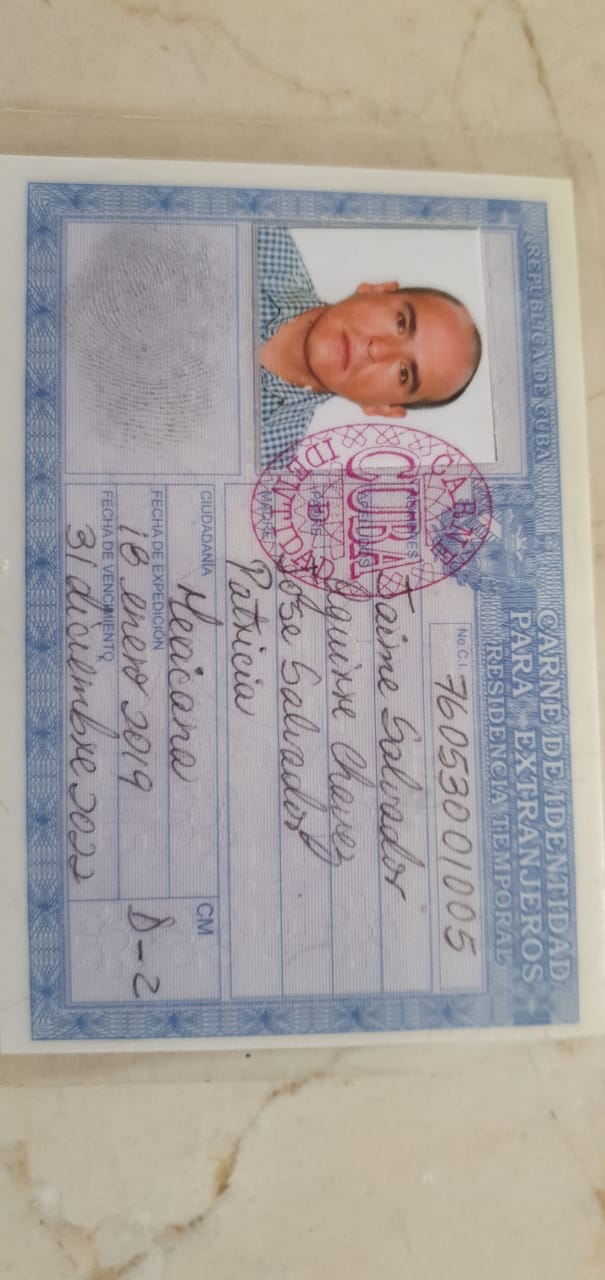 REPUBLICA DE CUBA
CARNÉ DE IDENTIDAD
PARA EXTRANJEROS
RESIDENCIA TEMPORAL
No.C.I. 76053001005
NOMBRES Jaime Salvador
APELLIDOS Aguirre Chavez
PADRE Jose Salvador
MADRE Patricia
CIUDADANÍA Mexicana
CM D-2
FECHA DE EXPEDICIÓN
18 enero 2019
FECHA DE VENCIMIENTO
31 diciembre 2022
CUBA